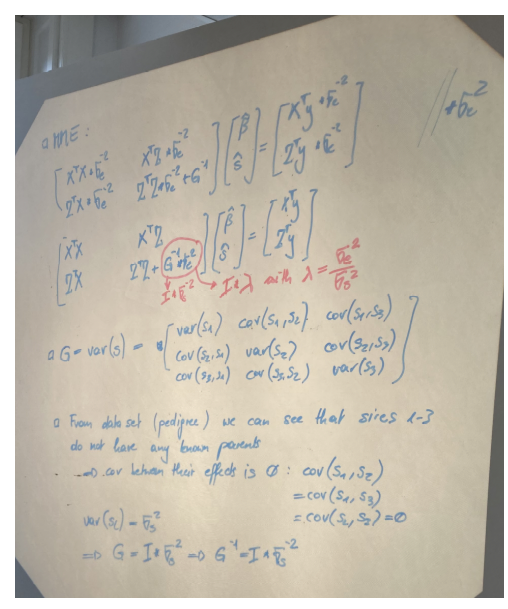 □ MME:
[XᵀX * σe⁻² XᵀZ * σe⁻²] [β̂] = [Xᵀy * σe⁻²] // * σe²
[ZᵀX * σe⁻² ZᵀZ * σe⁻² + G⁻¹] [ŝ] = [Zᵀy * σe⁻²]
[XᵀX XᵀZ] [β̂] = [Xᵀy]
[ZᵀX ZᵀZ + G⁻¹ * σe²] [ŝ] = [Zᵀy]
I * σs⁻² → I * λ with λ = σe²/σs²
□ G = var(s) = [var(s1) cov(s1,s2) cov(s1,s3)]
[cov(s2,s1) var(s2) cov(s2,s3)]
[cov(s3,s1) cov(s3,s2) var(s3)]
□ From data set (pedigree) we can see that sires 1-3
do not have any known parents
=> cov between their effects is Ø: cov(s1,s2)
= cov(s1,s3)
= cov(s2,s2) = Ø
var(si) = σs²
=> G = I * σs² => G⁻¹ = I * σs⁻²